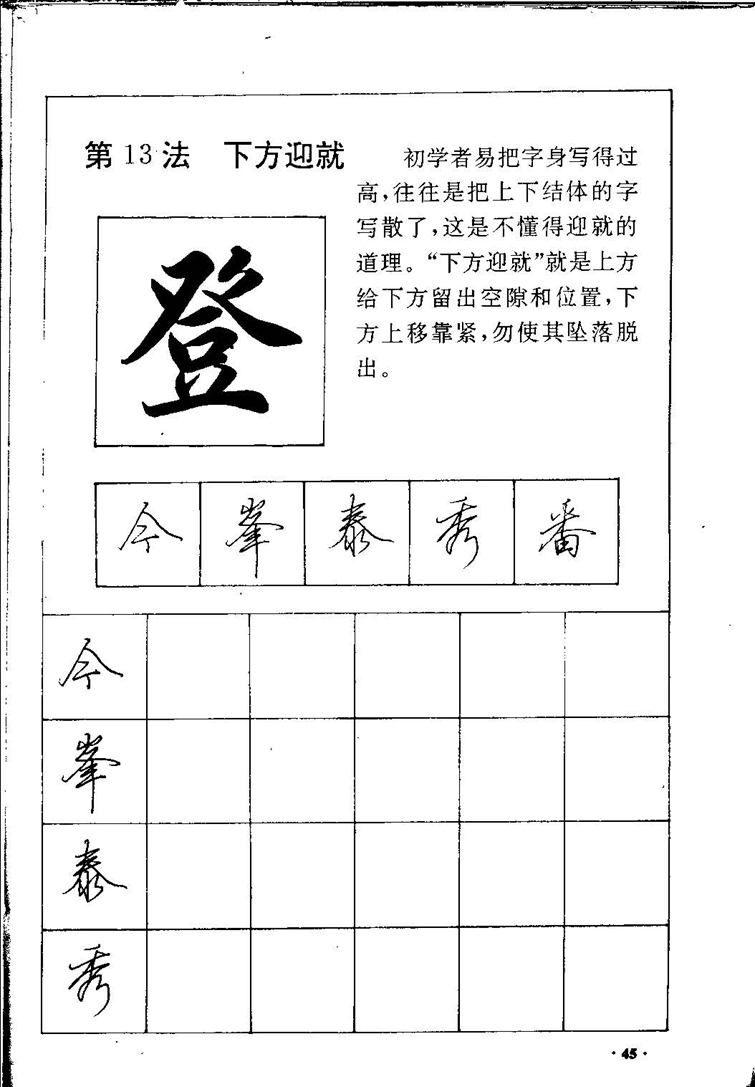 第13法　下方迎就
初学者易把字身写得过
高，往往是把上下结体的字
写散了，这是不懂得迎就的
道理。“下方迎就”就是上方
给下方留出空隙和位置，下
方上移靠紧，勿使其坠落脱
出。
登
今 峯 泰 秀 番
今
峯
泰
秀
·45·